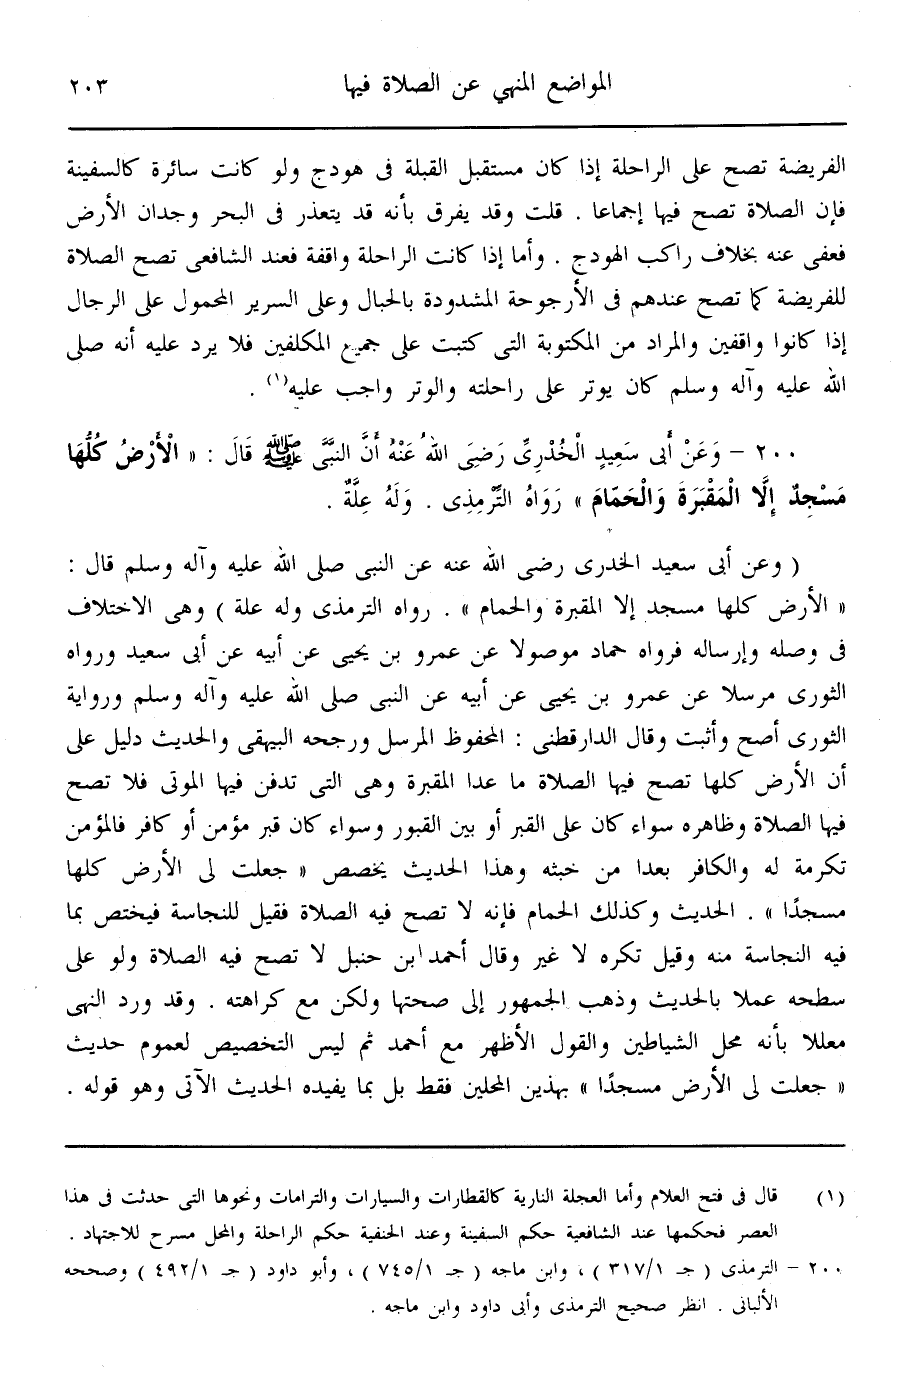 المواضع المنهي عن الصلاة فيها ٢٠٣
الفريضة تصح على الراحلة إذا كان مستقبل القبلة فى هودج ولو كانت سائرة كالسفينة
فإن الصلاة تصح فيها إجماعا . قلت وقد يفرق بأنه قد يتعذر فى البحر وجدان الأرض
فعفى عنه بخلاف راكب الهودج . وأما إذا كانت الراحلة واقفة فعند الشافعى تصح الصلاة
للفريضة كما تصح عندهم فى الأرجوحة المشدودة بالحبال وعلى السرير المحمول على الرجال
إذا كانوا واقفين والمراد من المكتوبة التى كتبت على جميع المكلفين فلا يرد عليه أنه صلى
الله عليه وآله وسلم كان يوتر على راحلته والوتر واجب عليه(١) .
٢٠٠ – وَعَنْ أَبى سَعِيدٍ الْخُدْرِىِّ رَضِىَ اللهُ عَنْهُ أَنَّ النبَّىَّ ﷺ قَالَ : « الْأَرْضُ كُلُّهَا
مَسْجِدٌ إِلَّا الْمَقْبَرَةَ وَالْحَمَّامَ » رَوَاهُ التِّرْمِذِى . وَلَهُ عِلَّةٌ .
( وعن أبى سعيد الخدرى رضى الله عنه عن النبى صلى الله عليه وآله وسلم قال :
« الأرض كلها مسجد إلا المقبرة والحمام » . رواه الترمذى وله علة ) وهى الاختلاف
فى وصله وإرساله فرواه حماد موصولا عن عمرو بن يحيى عن أبيه عن أبى سعيد ورواه
الثورى مرسلا عن عمرو بن يحيى عن أبيه عن النبى صلى الله عليه وآله وسلم ورواية
الثورى أصح وأثبت وقال الدارقطنى : المحفوظ المرسل ورجحه البيهقى والحديث دليل على
أن الأرض كلها تصح فيها الصلاة ما عدا المقبرة وهى التى تدفن فيها الموتى فلا تصح
فيها الصلاة وظاهره سواء كان على القبر أو بين القبور وسواء كان قبر مؤمن أو كافر فالمؤمن
تكرمة له والكافر بعدا من خبثه وهذا الحديث يخصص « جعلت لى الأرض كلها
مسجدًا » . الحديث وكذلك الحمام فإنه لا تصح فيه الصلاة فقيل للنجاسة فيختص بما
فيه النجاسة منه وقيل تكره لا غير وقال أحمد ابن حنبل لا تصح فيه الصلاة ولو على
سطحه عملا بالحديث وذهب الجمهور إلى صحتها ولكن مع كراهته . وقد ورد النهى
معللا بأنه محل الشياطين والقول الأظهر مع أحمد ثم ليس التخصيص لعموم حديث
« جعلت لى الأرض مسجدًا » بهذين المحلين فقط بل بما يفيده الحديث الآتى وهو قوله .
(١) قال فى فتح العلام وأما العجلة النارية كالقطارات والسيارات والترامات ونحوها التى حدثت فى هذا
العصر فحكمها عند الشافعية حكم السفينة وعند الحنفية حكم الراحلة والمحل مسرح للاجتهاد .
٢٠٠ – الترمذى ( جـ ٣١٧/١ ) ، وابن ماجه ( جـ ٧٤٥/١ ) ، وأبو داود ( جـ ٤٩٢/١ ) وصححه
الألبانى . انظر صحيح الترمذى وأبى داود وابن ماجه .